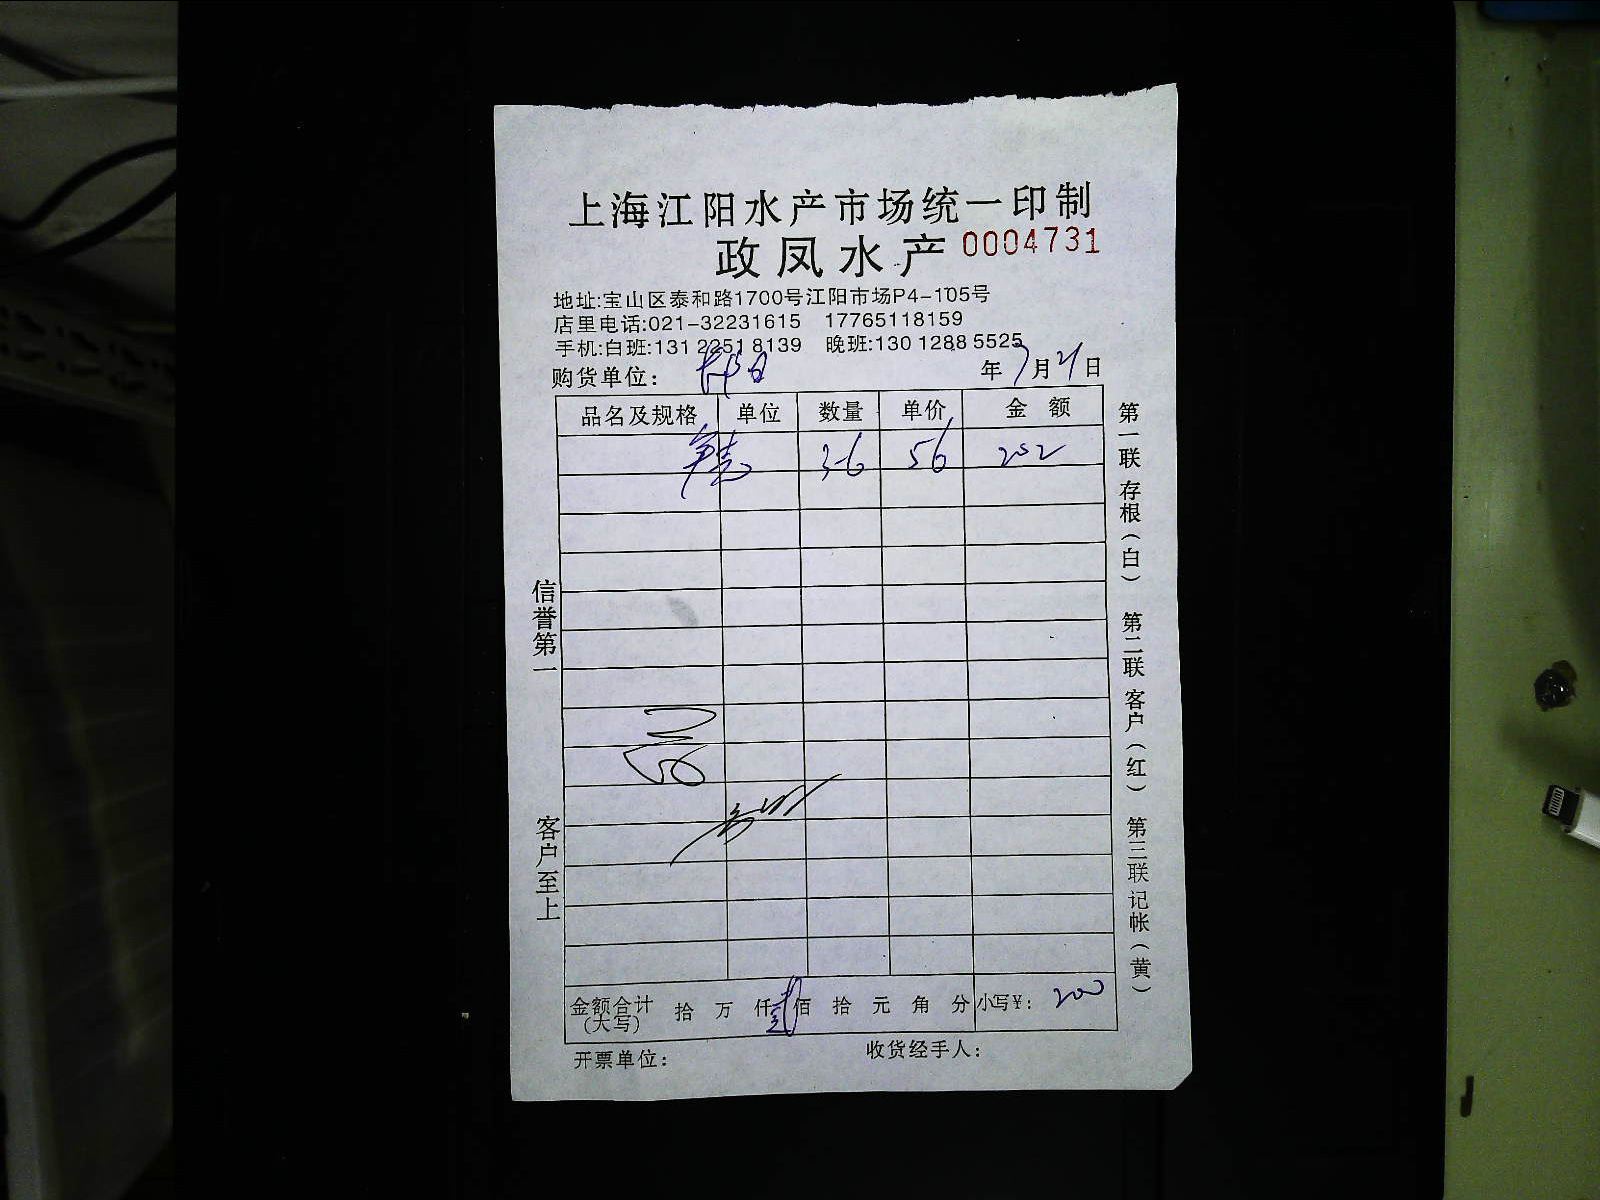 上海江阳水产市场统一印制
政凤水产 0004731
地址:宝山区泰和路1700号江阳市场P4-105号
店里电话:021-32231615 17765118159
手机:白班:131 2251 8139 晚班:130 1288 5525
购货单位：
年 7月21日
品名及规格 单位 数量 单价 金 额
3.6 56 202
信誉第一
客户至上
第一联 存根(白) 第二联 客户(红) 第三联 记帐(黄)
金额合计(大写) 拾 万 仟 贰佰 拾 元 角 分 小写¥: 200
开票单位： 收货经手人：